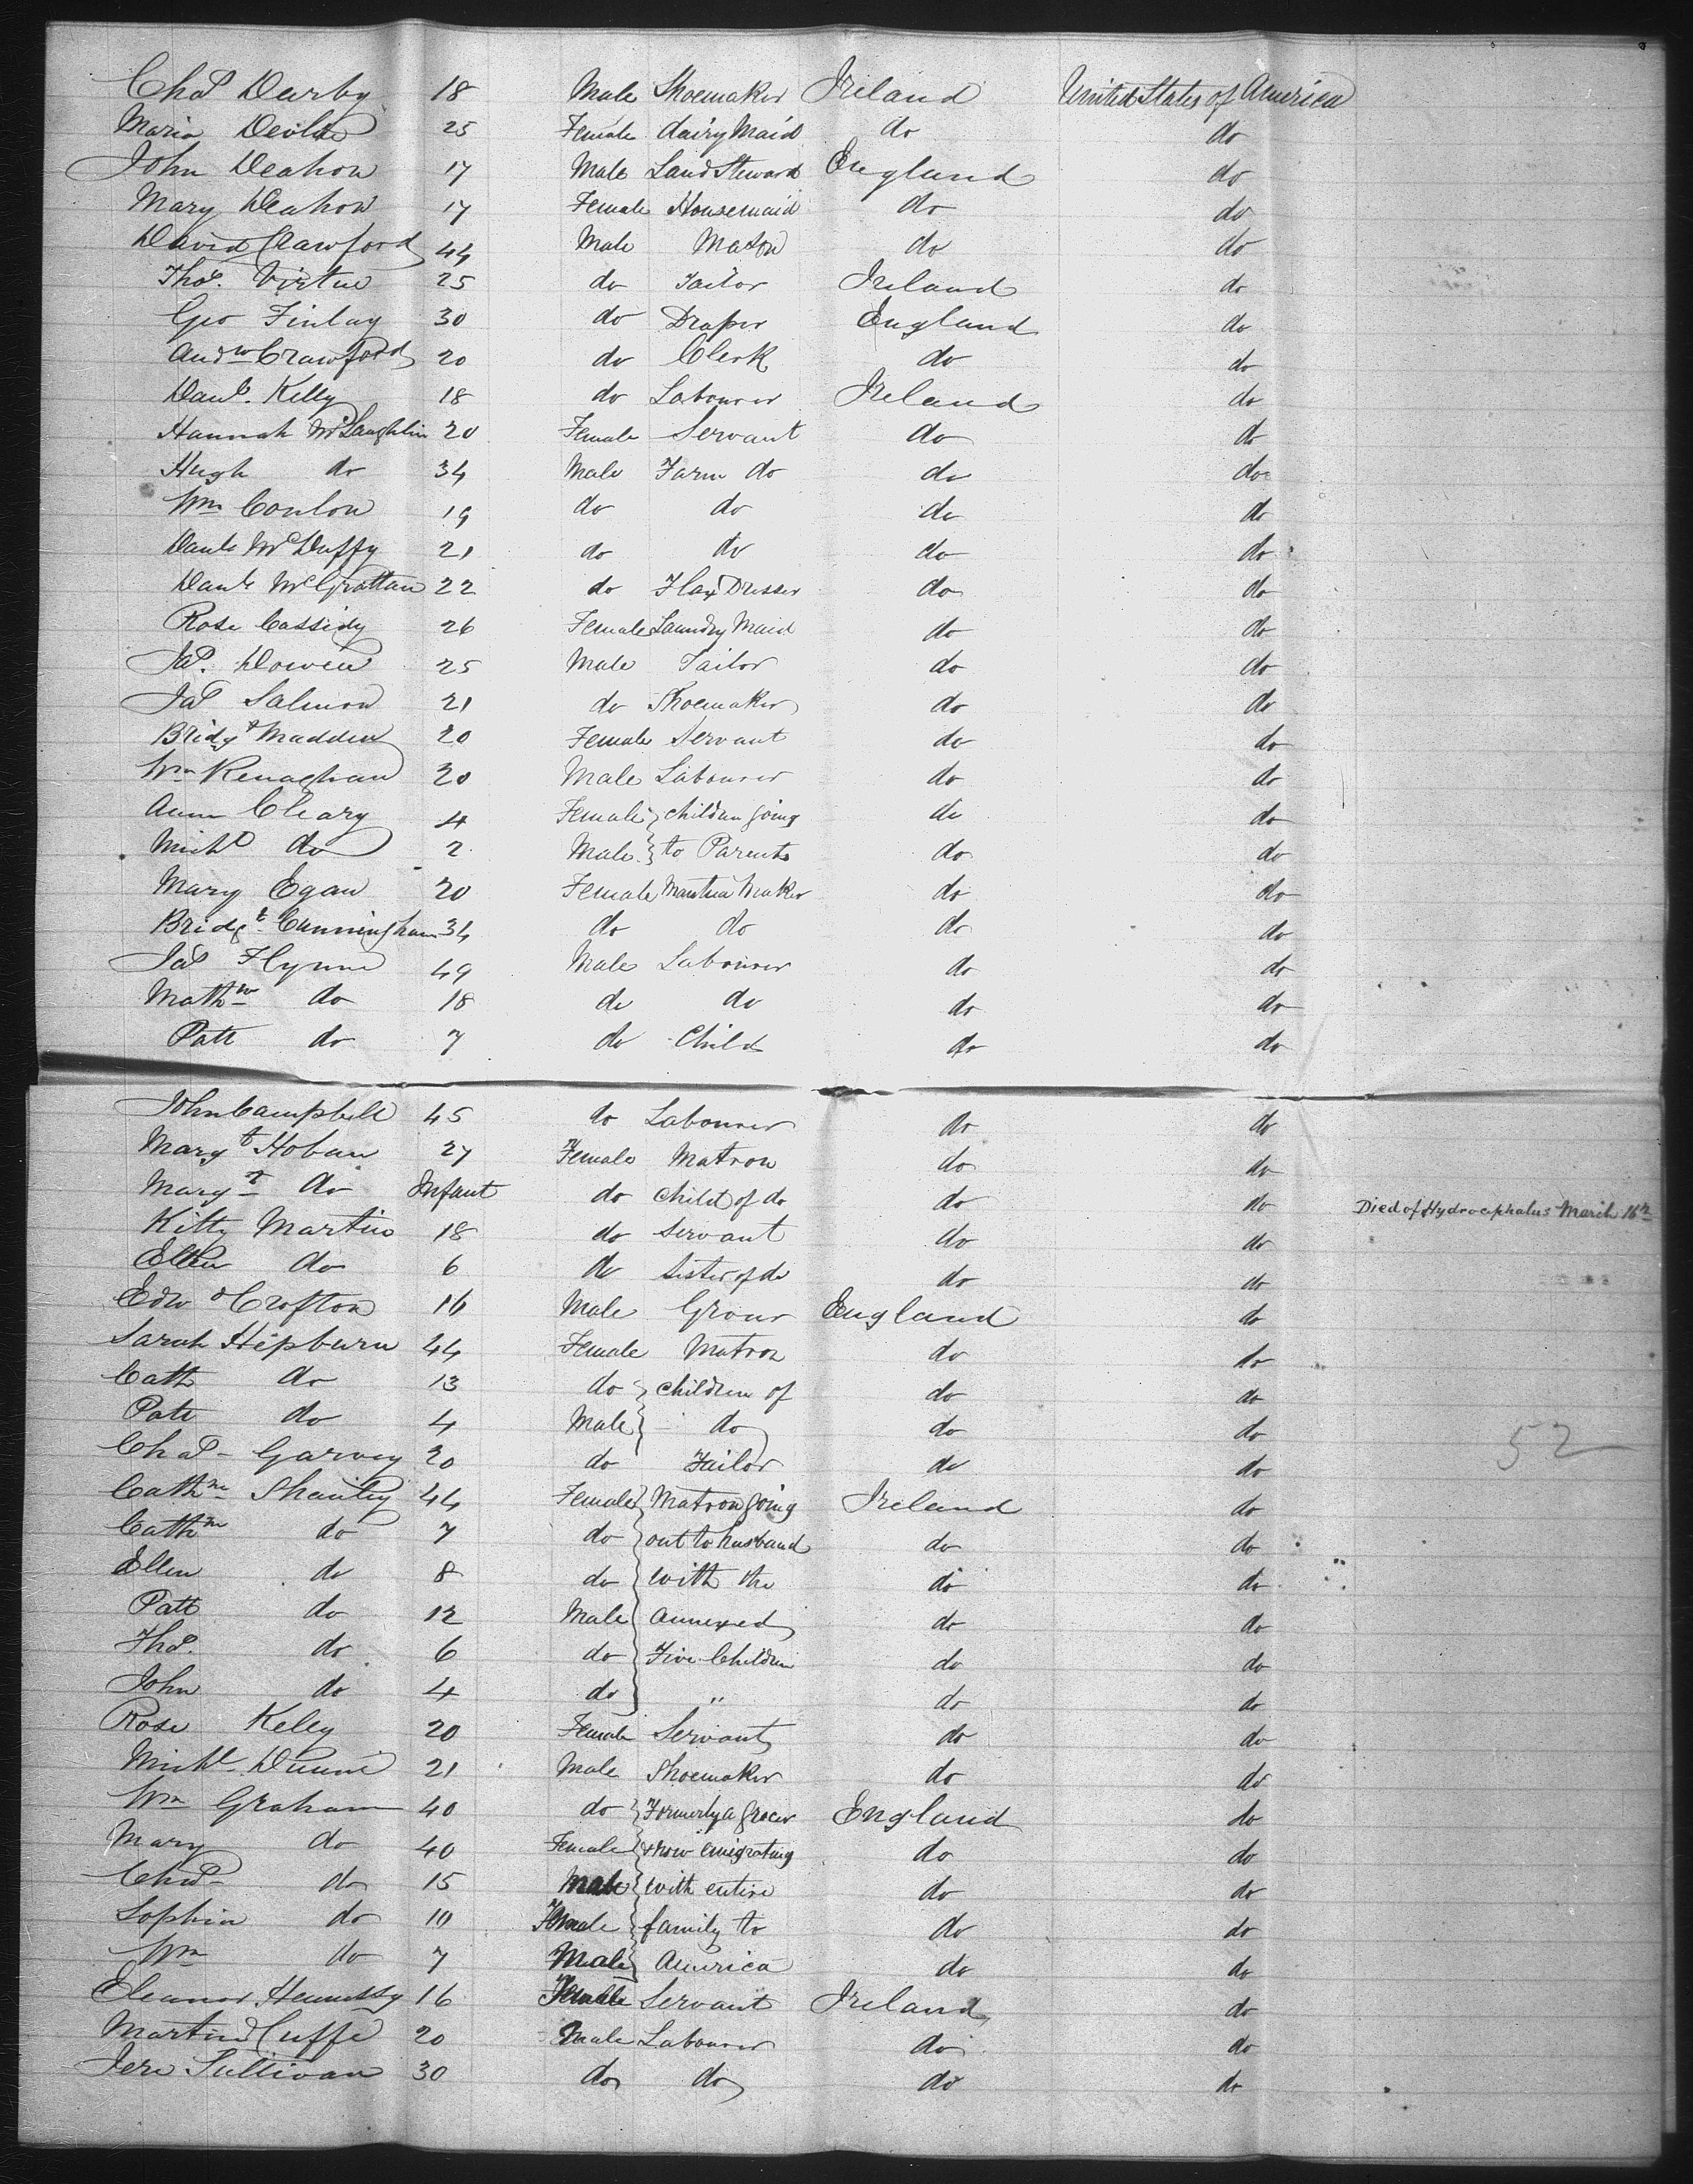 Chas Darby 18 Male Shoemaker Ireland United States of America
Maria Devlin 25 Female dairy Maid do do
John Deahon 17 Male Land Steward England do
Mary Deahon 17 Female Housemaid do do
David Crawford 44 Male Mason do do
Thos. Virtue 25 do Tailor Ireland do
Geo Finlay 30 do Draper England do
Andw Crawford 20 do Clerk do do
Danl. Kelly 18 do Labourer Ireland do
Hannah McLaughlin 20 Female Servant do do
Hugh do 34 Male Farm do do do
Wm Conlon 19 do do do do
Danl McDuffy 21 do do do do
Danl McGrattan 22 do Flax Dresser do do
Rose Cassidy 26 Female Laundry Maid do do
Jas. Dowen 25 Male Tailor do do
Jas Salmon 21 do Shoemaker do do
Bridgt Madden 20 Female Servant do do
Wm Renaghan 20 Male Labourer do do
Ann Cleary 4 Female children going do do
Michl do 2 Male to Parents do do
Mary Egan 20 Female Mantua Maker do do
Bridgt. Cunningham 34 do do do do
Jas Flynn 49 Male Labourer do do
Mathw do 18 do do do do
Patt do 7 do Child do do
John Campbell 45 do Labourer do do
Margt Hoban 27 Female Matron do do
Margt do Infant do child of do do do Died of Hydrocephalus March 16th
Kitty Martin 18 do Servant do do
Ellen do 6 do Sister of do do do
Edwd Crofton 16 Male Grocer England do
Sarah Hepburn 44 Female Matron do do
Cath do 13 do children of do do
Patt do 4 Male do do do
Chas Garvey 20 do Tailor do do
Cathne Shanley 44 Female Matron going Ireland do
Cathne do 7 do out to husband do do
Ellen do 8 do with the do do
Patt do 12 Male annexed do do
Thos. do 6 do Five Children do do
John do 4 do " do do
Rose Kelly 20 Female Servant do do
Michl Dunne 21 Male Shoemaker do do
Wm Graham 40 do Formerly a Grocer England do
Mary do 40 Female & now emigrating do do
Chas do 15 Male with entire do do
Sophia do 10 Female family to do do
Wm do 7 Male America do do
Eleanor Hennessy 16 Female Servant Ireland do
Martin Cuffe 20 Male Labourer do do
Jere Sullivan 30 do do do do
52